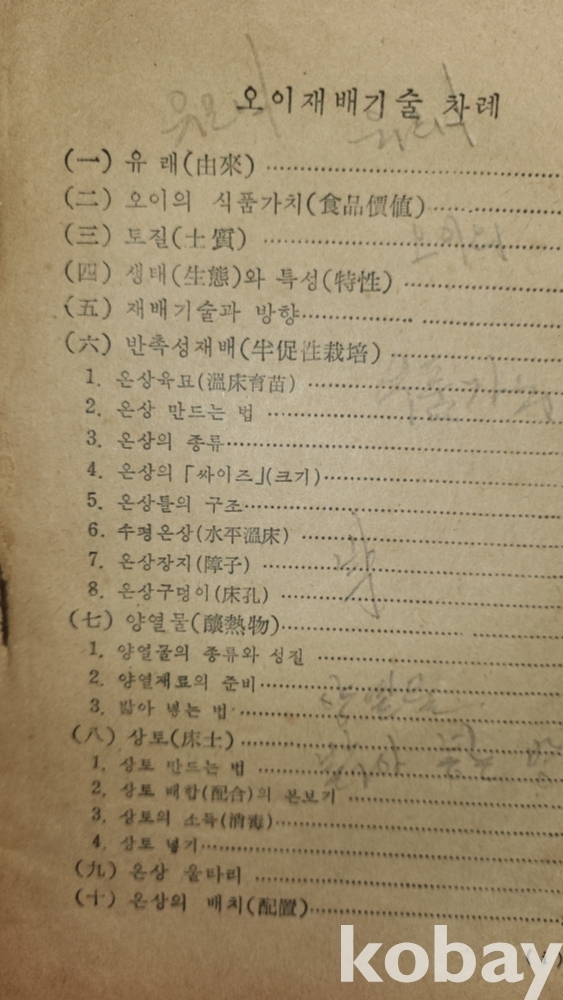 오이재배기술 차례
(一) 유 래(由來)
(二) 오이의 식품가치(食品價値)
(三) 토질(土質)
(四) 생태(生態)와 특성(特性)
(五) 재배기술과 방향
(六) 반촉성재배(半促性栽培)
1. 온상육묘(溫床育苗)
2. 온상 만드는 법
3. 온상의 종류
4. 온상의「싸이즈」(크기)
5. 온상틀의 구조
6. 수평온상(水平溫床)
7. 온상장지(障子)
8. 온상구덩이(床孔)
(七) 양열물(釀熱物)
1. 양열물의 종류와 성질
2. 양열재료의 준비
3. 밟아 넣는 법
(八) 상토(床土)
1. 상토 만드는 법
2. 상토 배합(配合)의 본보기
3. 상토의 소독(消毒)
4. 상토 넣기
(九) 온상 울타리
(十) 온상의 배치(配置)
kobay